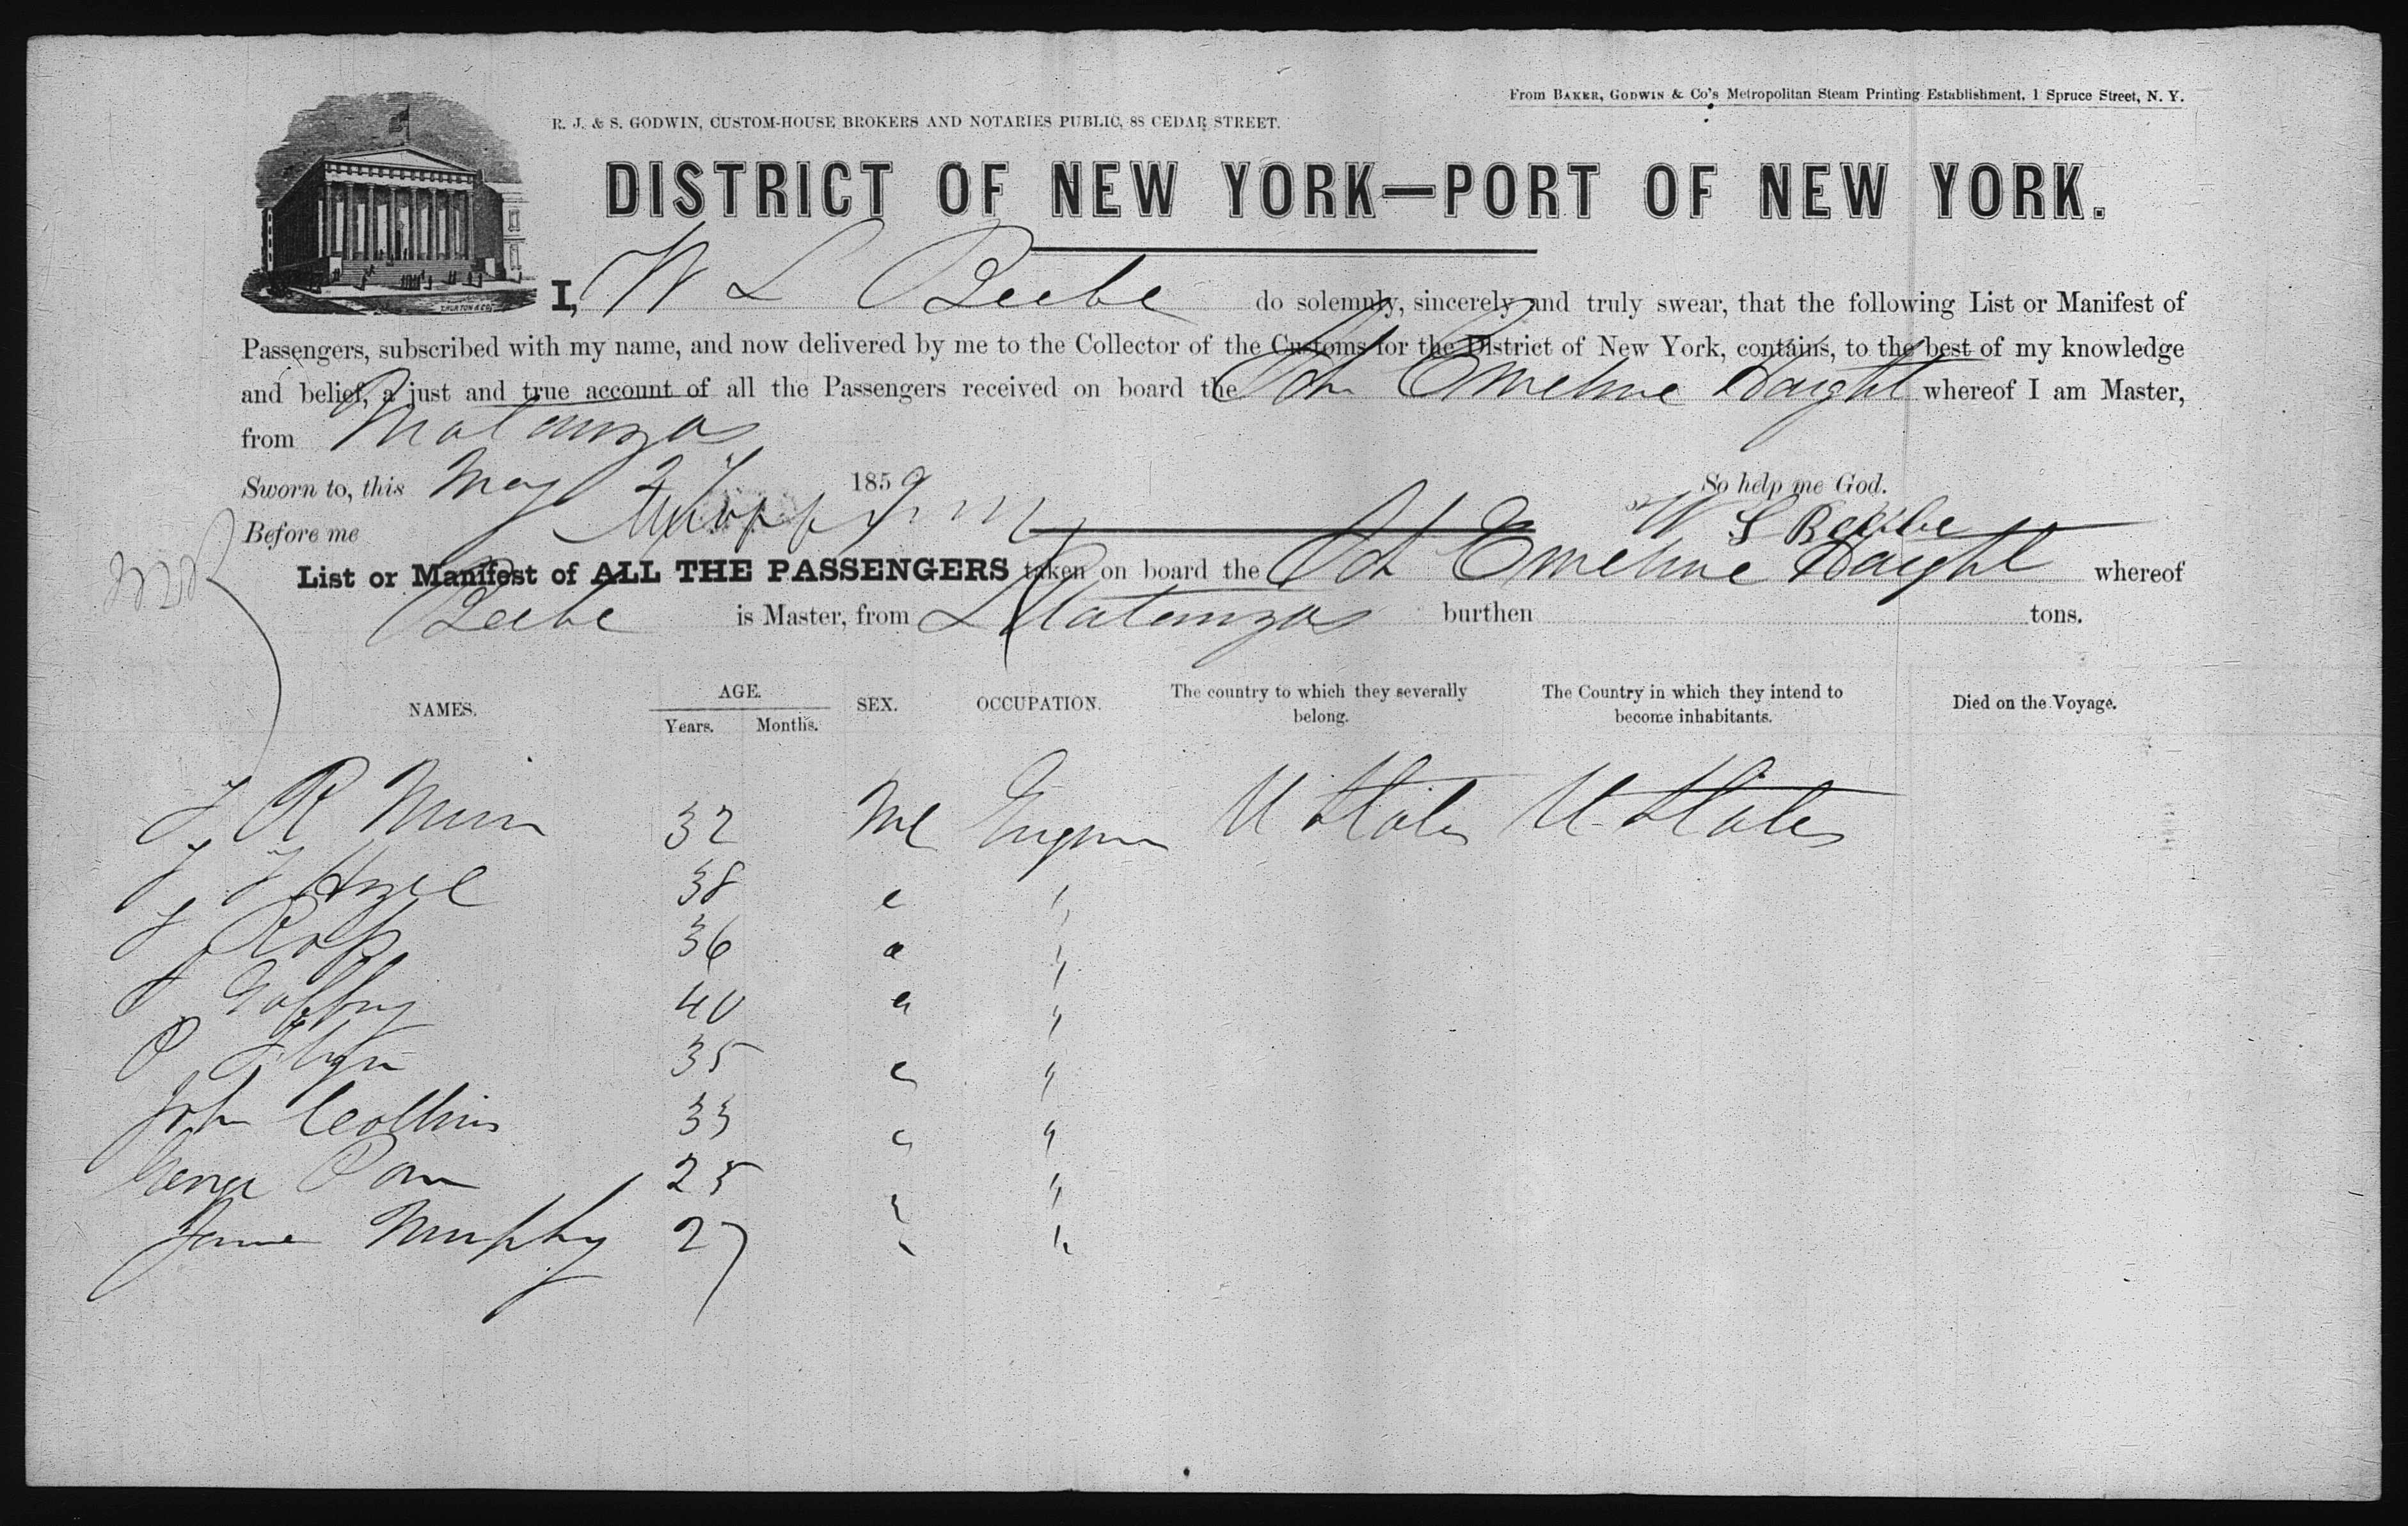 From BAKER, GODWIN & Co's Metropolitan Steam Printing Establishment, 1 Spruce Street, N. Y.
R. J. & S. GODWIN, CUSTOM-HOUSE BROKERS AND NOTARIES PUBLIC, 88 CEDAR STREET.
DISTRICT OF NEW YORK—PORT OF NEW YORK.
I, W L Beebe do solemnly, sincerely and truly swear, that the following List or Manifest of
Passengers, subscribed with my name, and now delivered by me to the Collector of the Customs for the District of New York, contains, to the best of my knowledge
and belief, a just and true account of all the Passengers received on board the Sch Emeline Haight whereof I am Master,
from Matanzas
Sworn to, this May 27 1859 So help me God.
Before me W S Beebe
List or Manifest of ALL THE PASSENGERS taken on board the Sch Emeline Haight whereof
Beebe is Master, from Matanzas burthen tons.
NAMES. AGE. Years. Months. SEX. OCCUPATION. The country to which they severally belong. The Country in which they intend to become inhabitants. Died on the Voyage.
R 32 Ml U States U States
38 "
36 "
40 "
35 "
John Collins 33 "
George 25 "
Murphy 27 "